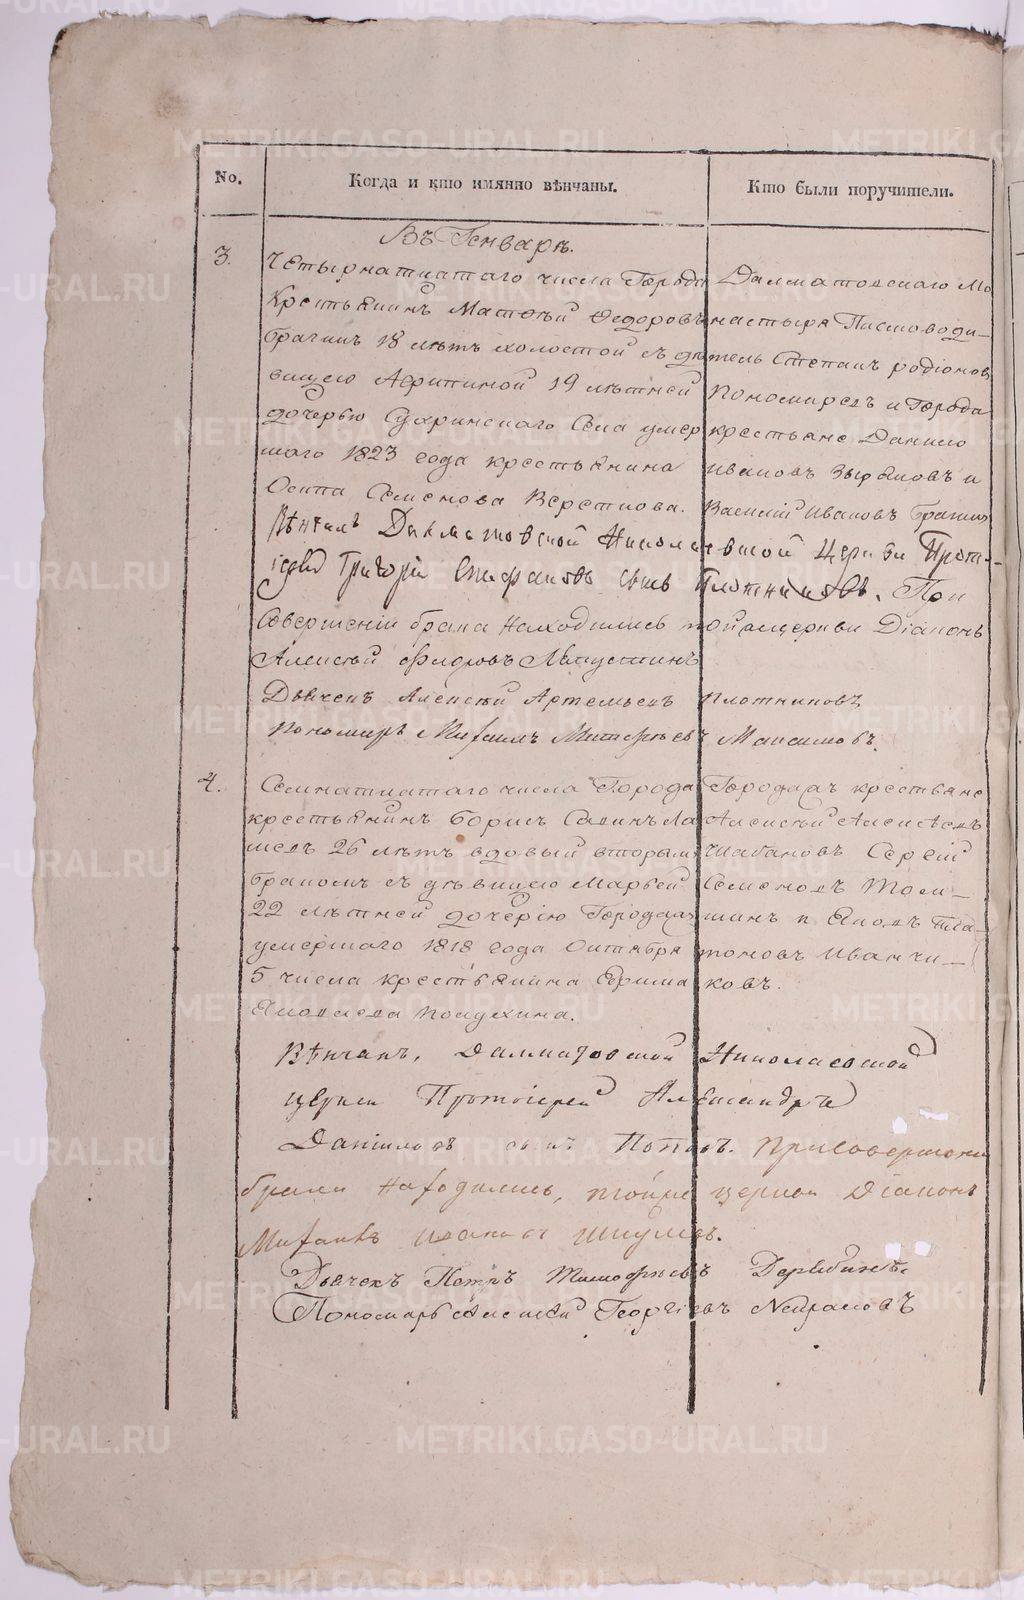 No.
Когда и кто имянно вѣнчаны.
Кто были поручители.
Въ Генварѣ.
3.
Четырнатцатаго числа Города
Крестьянинъ Матѳей Ѳедоровъ
Брагинъ 18 лѣтъ холостой съ дѣ
вицею Агрипиной 19 лѣтней
дочерью Сухринскаго Села умер
шаго 1823 года крестьянина
Осипа Семенова Верстнова.
Далматовскаго Мо
настыря Писмоводи-
тель Степанъ родіоновъ
Пономаревъ и Города
крестьяне Данило
ивановъ Зыряновъ и
Василій Ивановъ Брагинъ
Вѣнчалъ Далматовской Николаевской Церкви Прот-
іерей Григорій Стефановъ сынъ Плотниковъ. При
Совершеніи брака находились той же церкви Діаконъ
Алексѣй Федоровъ
Дьячекъ Алексѣй Артемьевъ Плотниковъ
Пономарь Михаилъ Максимовъ.
4.
Семнатцатаго числа Города
крестьянинъ Борисъ Савинъ Ла
26 лѣтъ вдовый вторымъ
бракомъ съ дѣвицею Марьей
22 лѣтней дочерію Города
умершаго 1818 года Октября
5 числа крестьянина Ефима
Яковлева Полухина.
Города крестьяне
Алексѣй Алексѣевъ
Шабановъ Сергій
Семеновъ Том-
шинъ и Яковъ Пла-
тоновъ Иванчи-
ковъ.
Вѣнчалъ, Далматовской Николаевской
церкви Протоіерей Александръ
Даниловъ сынъ Поповъ. При Совершеніи
брака находились, тойже церкви Діаконъ
Михаилъ Ивановъ
Дьячекъ Петръ Тимофеевъ Дерябинъ.
Пономарь Алексѣй Георгіевъ Некрасовъ
METRIKI.GASO-URAL.RU